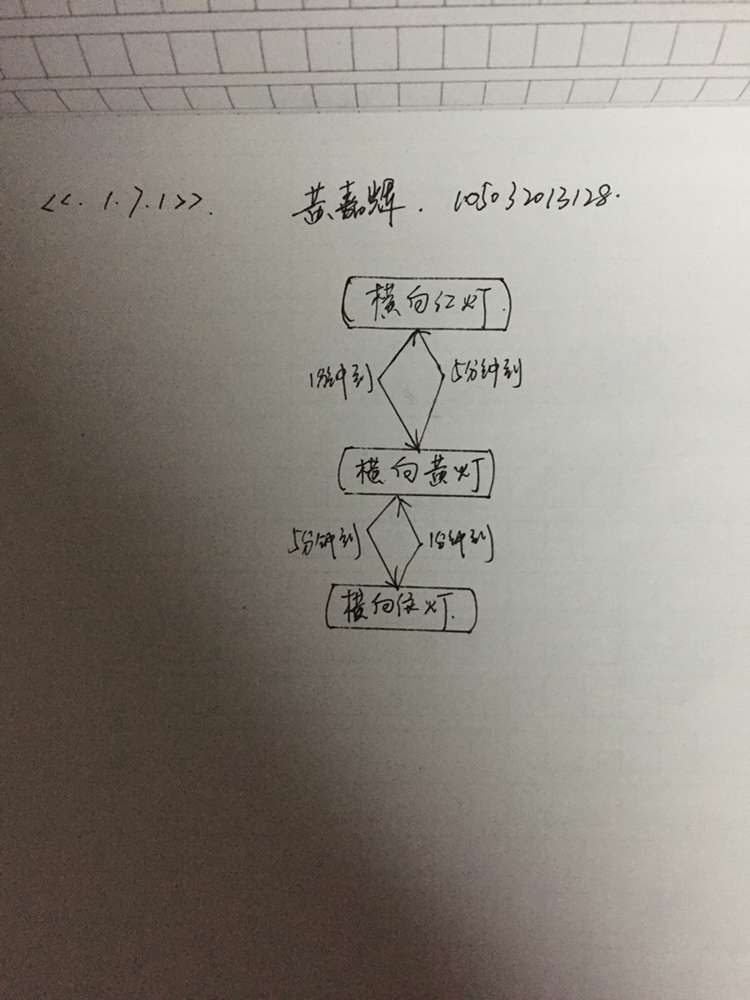 <<.1.7.1>>. 黄嘉辉. 105032013128.
横向红灯.
1分钟到 5分钟到
横向黄灯
5分钟到 1分钟到
横向绿灯.